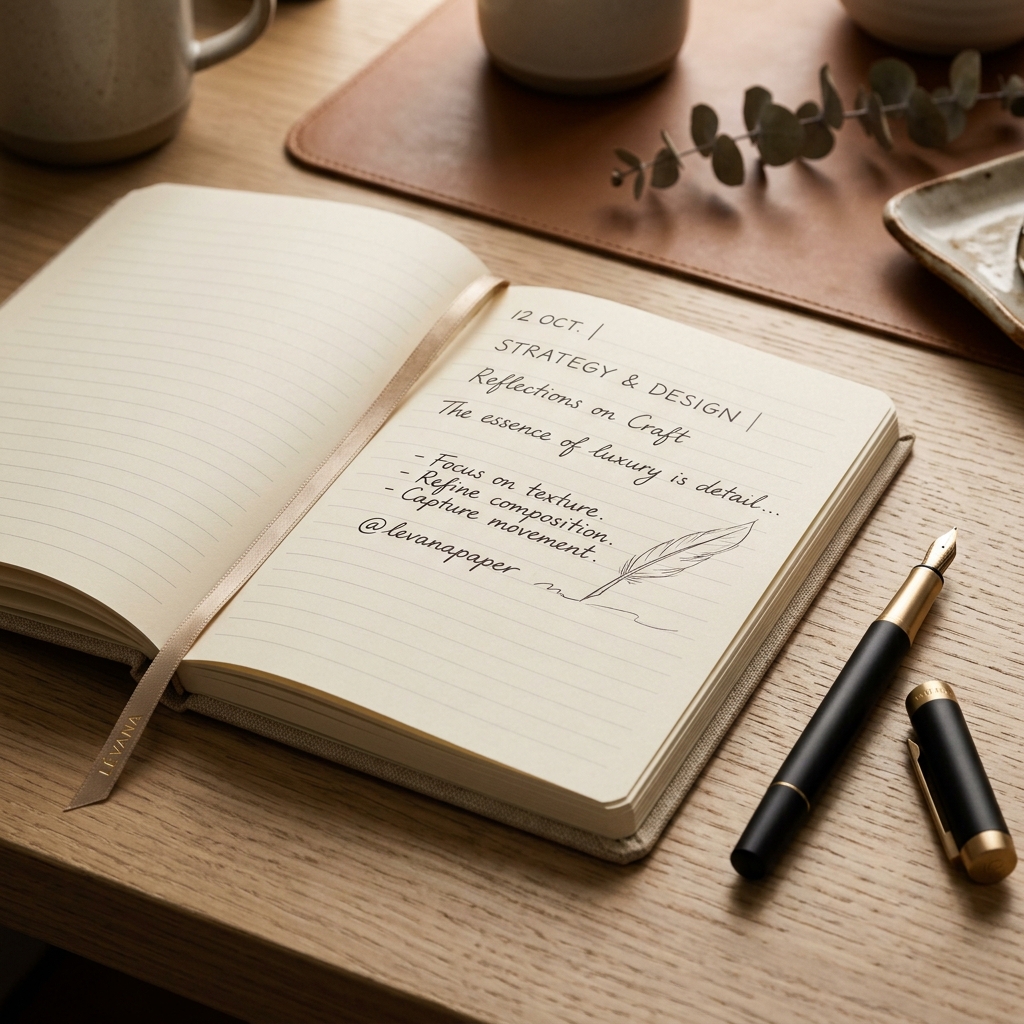 12 OCT. |
STRATEGY & DESIGN |
Reflections on Craft
The essence of luxury is detail...
- Focus on texture.
- Refine composition.
- Capture movement.
@levanapaper
LEVANA